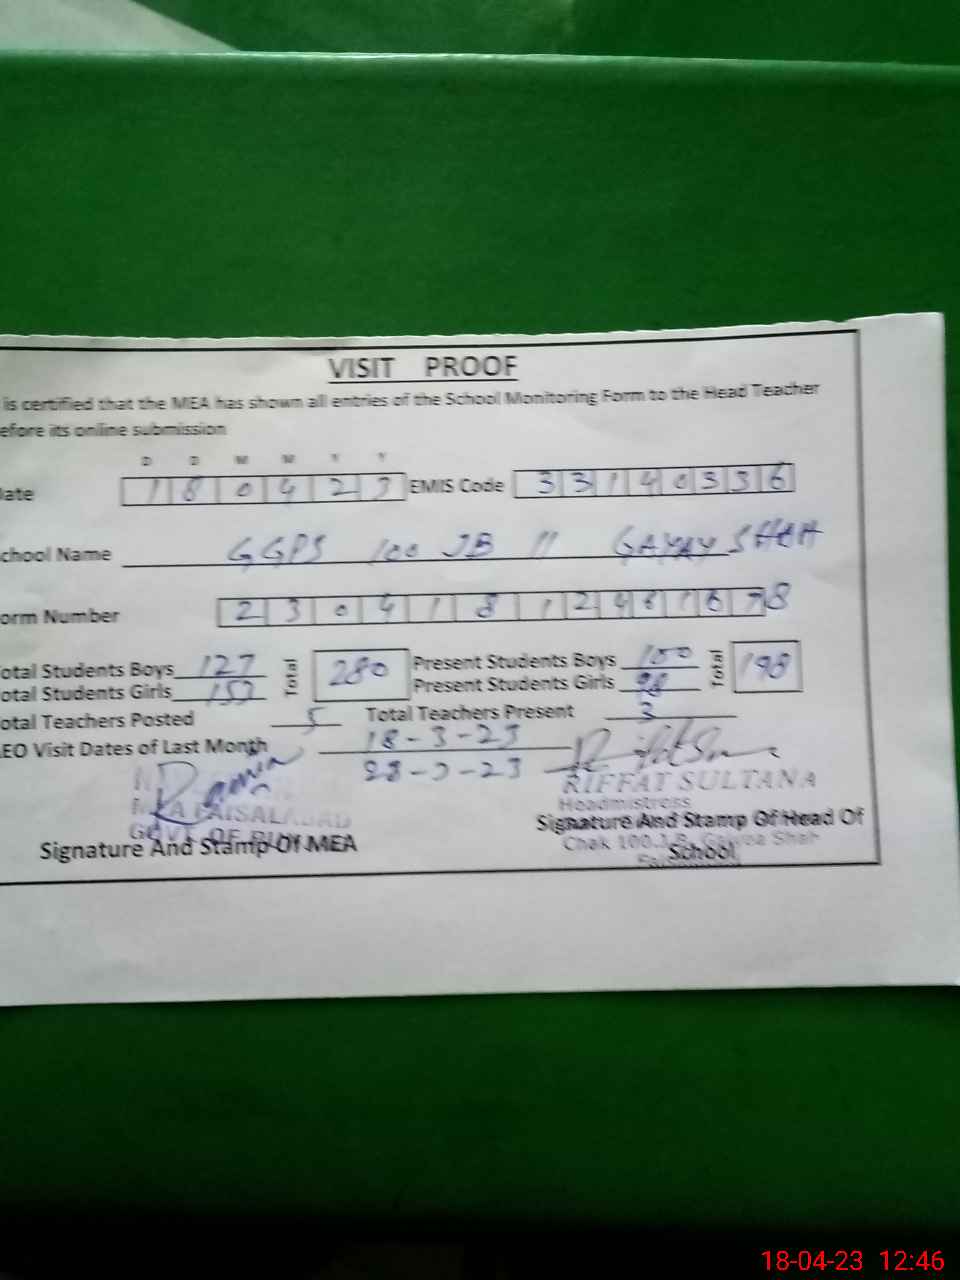 VISIT PROOF
is certified that the MEA has shown all entries of the School Monitoring Form to the Head Teacher
efore its online submission
D D M M Y Y
ate 1 8 0 4 2 3 EMIS Code 3 3 1 4 0 3 3 6
chool Name GGPS 100 JB 11 SHAH
orm Number 2 3 0 4 1 8 1 2 4 6 1 6 7 8
otal Students Boys 127 Total 280 Present Students Boys 100 Total 198
otal Students Girls 153 Present Students Girls 98
otal Teachers Posted 5 Total Teachers Present 3
EO Visit Dates of Last Month 18-3-23
28-3-23
RIFFAT SULTANA
FAISALABAD
Headmistress
GOVT OF
Signature And Stamp Of MEA
Signature And Stamp Of Head Of
School
Chak 100 J.B. Shah
18-04-23 12:46